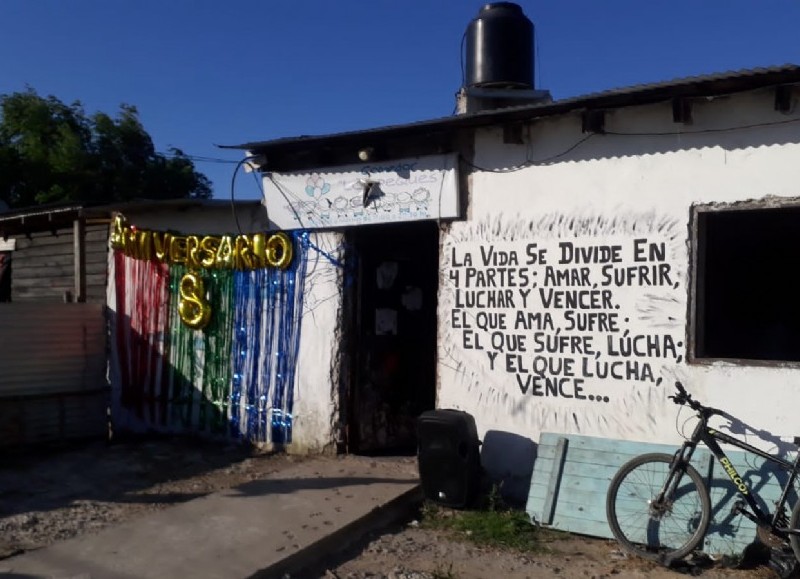 ANIVERSARIO
8
LA VIDA SE DIVIDE EN
4 PARTES; AMAR, SUFRIR,
LUCHAR Y VENCER.
EL QUE AMA, SUFRE;
EL QUE SUFRE, LUCHA;
Y EL QUE LUCHA,
VENCE...
PHILCO